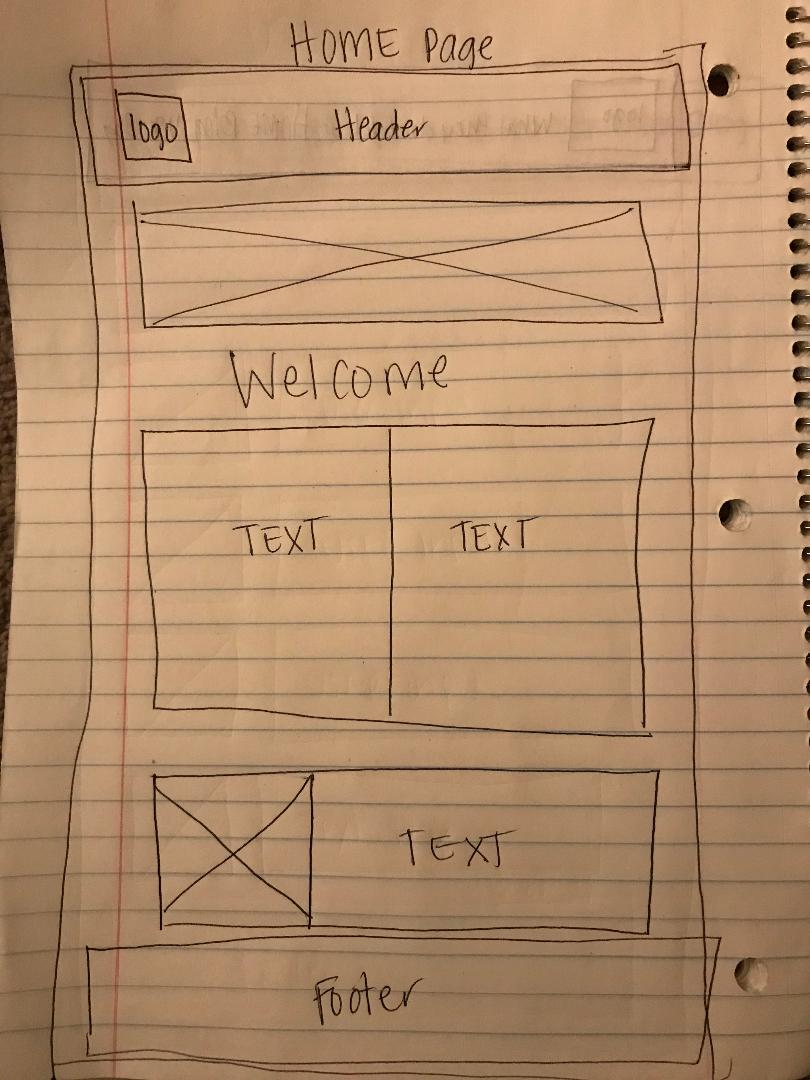 HOME Page
logo Header
Welcome
TEXT TEXT
TEXT
Footer